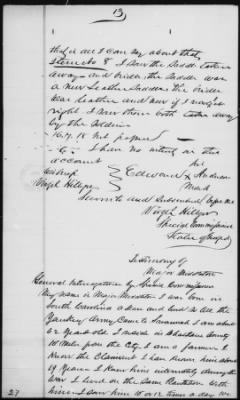 13
that is all I can say about that
Item No 8 I saw the saddle taken
away and bridle the saddle was
a new leather saddle the bridle
was leather and new if I
right I saw them both taken away
by the soldiers
16, 17, 18 not proposed
I have no interest in this
account his
witness Edward X Anderson
Virgil Hillyer mark
Sworn to and subscribed before me
Virgil Hillyer
Special Commissioner
State of Georgia
Testimony of
Major
General Interrogatories by Special Commissioner
My name is Major I was born in
South Carolina a slave and until the
Yankey Army came to Savannah I am about
62 years old I reside in Chatham County
10 Miles from the City I am a farmer I
know the Claimant I have known him about
19 years I knew him intimately during the
war I lived on the same Plantation with
him I saw him 10 or 12 times a day we
27